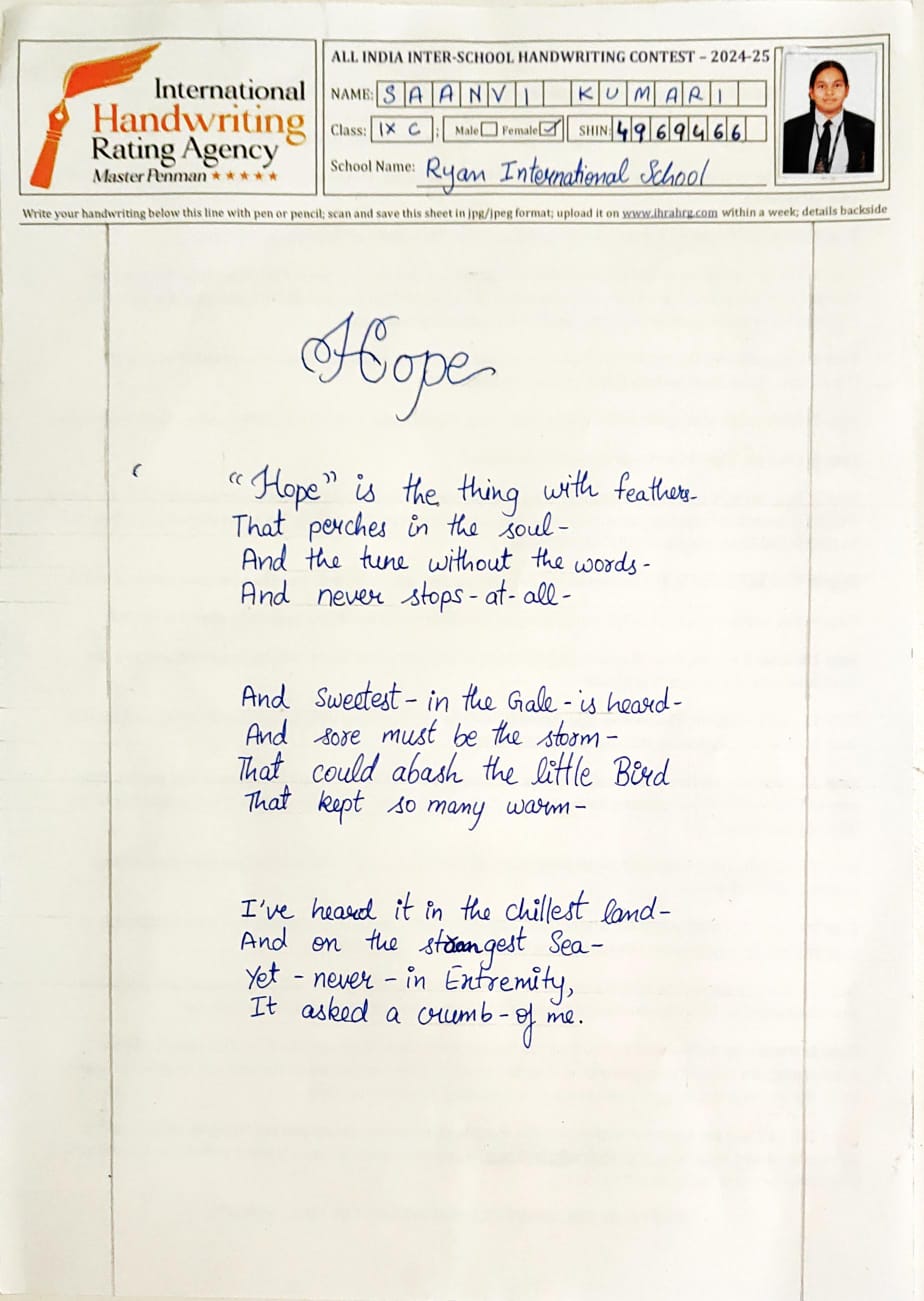 International
Handwriting
Rating Agency
Master Penman ★★★★★
ALL INDIA INTER-SCHOOL HANDWRITING CONTEST – 2024-25
NAME: SAANVI KUMARI
Class: IX C ; Male ☐ Female ☑ SHIN: 4969466
School Name: Ryan International School
Write your handwriting below this line with pen or pencil; scan and save this sheet in jpg/jpeg format; upload it on www.ihrahrg.com within a week; details backside
Hope
“Hope” is the thing with feathers-
That perches in the soul-
And the tune without the words-
And never stops-at-all-
And Sweetest-in the Gale-is heard-
And sore must be the storm-
That could abash the little Bird
That kept so many warm-
I've heard it in the chillest land-
And on the strangest Sea-
Yet-never-in Extremity,
It asked a crumb-of me.